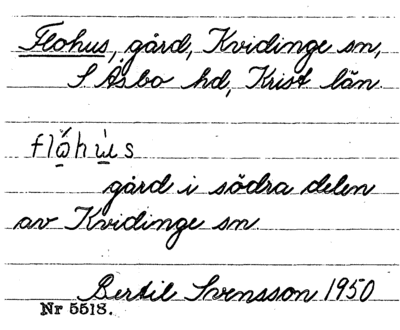 Flohus, gård, Kvidinge sn,
S Åsbo hd, Krist län.
flω̌hὼs
gård i södra delen
av Kvidinge sn
Bertil Svensson 1950
Nr 5518.